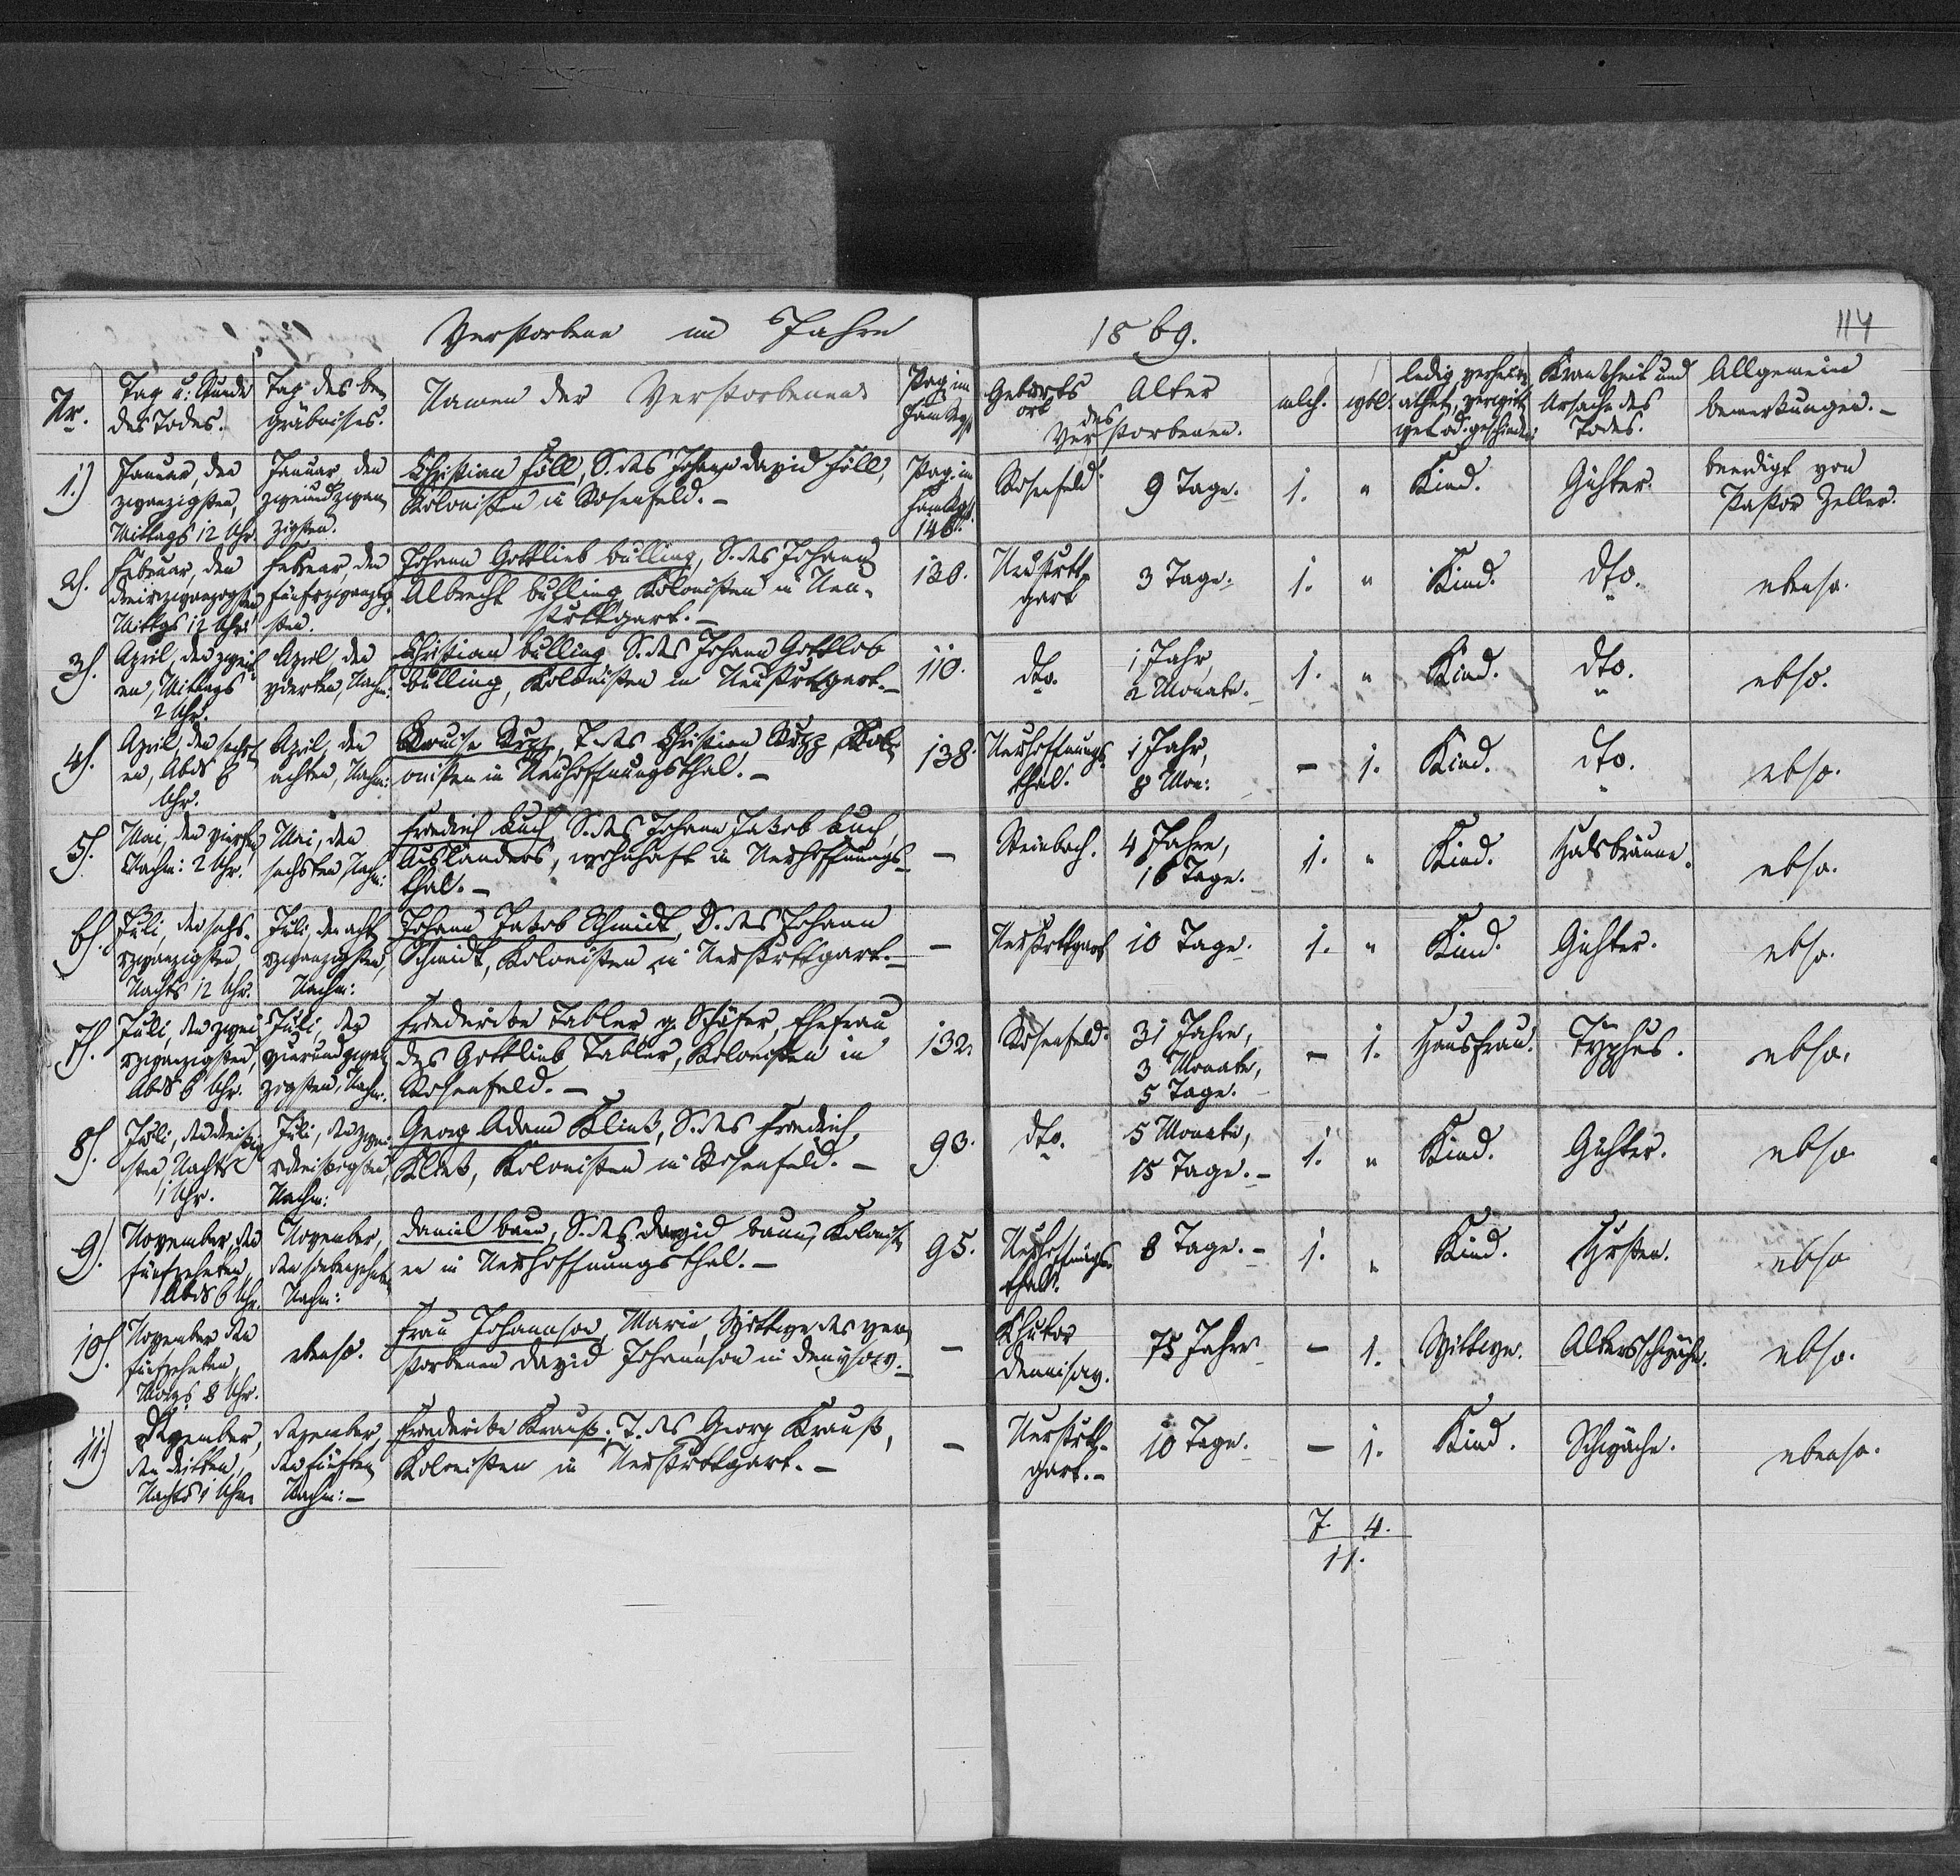 Verstorbene im Jahre 1869.
114
Nr.
Tag u: Stunde
des Todes.
Tag des Be-
gräbnisses.
Namen der Verstorbenen
Pag. im
Fam. Rgst
Geburts
ort
Alter
des
Verstorbenen.
mlch.
wbl.
ledig, verhei-
athet, verwitt-
wet od. geschieden
Krankheit und
Ursache des
Todes.
Allgemeine
Bemerkungen.-
1.)
Januar, den
zwanzigsten,
Mittags 12 Uhr.
Januar, den
zweiundzwan-
zigsten.
Christian Föll, S. des Johann David Föll,
Kolonisten in Rosenfeld.-
Pag. im
Fam. Rgst.
146.
Rosenfeld.
9 Tage.
1.
"
Kind.
Gichter.
beerdigt von
Pastor Zeller.
2).
Februar, den
dreiuzwanzigsten
Mittgs 12 Uhr.
Februar, den
fünfuzwanzig-
sten.
Johann Gottlieb Bulling, S. des Johann
Albrecht Bulling, Kolonisten in Neu-
stuttgart.-
120.
Neustutt-
gart
3 Tage.
1.
"
Kind.
dto.
ebenso.
3).
April, den zweit-
en, Mittags
2 Uhr.
April, den
vierten, Nachm:
Christian Bulling, S. des Johann Gottlob
Bulling, Kolonisten in Neustuttgart.-
110.
dto.
1 Jahr,
2 Monate.
1.
"
Kind.
dto.
ebso.
4).
April, den sechst-
en, Abds 6
Uhr.
April, den
achten, Nachm:
Louise Rupp, T. des Christian Rupp, Kol-
onisten in Neuhoffnungsthal.-
138.
Neuhoffnungs-
thal.
1 Jahr,
8 Mon:
-
1.
Kind.
dto.
ebso.
5).
Mai, den vierten,
Nachm: 2 Uhr.
Mai, den
sechsten, Nachm:
Friedrich Kuch, S. des Johann Jakob Kuch,
Ausländers, wohnhaft in Neuhoffnungs-
thal.-
-
Steinbach.
4 Jahre,
16 Tage.
1.
"
Kind.
Halsbräune.
ebso.
6).
Juli, den sechs-
uzwanzigsten
Nachts 12 Uhr.
Juli, den acht
uzwanzigsten,
Nachm:
Johann Jakob Schmidt, S. des Johann
Schmidt, Kolonisten in Neustuttgart.-
-
Neustuttgart
10 Tage.
1.
"
Kind
Gichter.
ebso.
7).
Juli, den zwei
uzwanzigsten,
Abds 6 Uhr.
Juli, den
vierundzwan-
zigsten, Nachm.
Friederike Tabler, g. Schäfer, Ehefrau
des Gottlieb Tabler, Kolonisten in
Rosenfeld.-
132.
Rosenfeld.
31 Jahre,
3 Monate,
5 Tage.
-
1.
Hausfrau.
Typhus.
ebso.
8).
Juli, den dreißig
sten, Nachts
1 Uhr.
Juli, den zwei
udreißigsten,
Nachm:
Georg Adam Klink, S. des Friedrich
Klink, Kolonisten in Rosenfeld.-
93.
dto.
5 Monate,
15 Tage.-
1.
"
Kind.
Gichter.
ebso
9).
November, den
fünfzehnten
Abds 6 Uhr.
November,
den siebenzehnten
Nachm:
Daniel Baun, S. des David Baun, Kolonist-
en in Neuhoffnungsthal.-
95.
Neuhoffnungs-
thal.
8 Tage.-
1.
"
Kind.
Husten.
ebso
10).
November den
fünfzehnten,
Morgs 8 Uhr.
ebenso.
Frau Johannson, Marie, Wittwe des ver-
storbenen David Johannson in Denysow.-
-
Chutor
Dennisow.
75 Jahre
-
1.
Wittwe.
Altersschwäche.
ebso.
11.)
Dezember,
den dritten,
Nachts 1 Uhr
Dezember,
den fünften
Nachm:-
Friederike Krauß, T. des Georg Krauß,
Kolonisten in Neustuttgart.-
-
Neustutt-
gart.-
10 Tage.
-
1.
Kind.
Schwäche.
ebenso.
7. 4.
11.